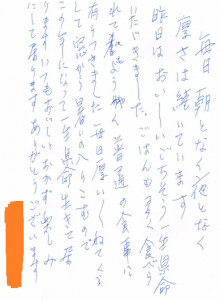 毎日朝となく夜となく
厚さは続いています
昨日はおいしいごちそう一生県命
いただきました。ごはんもまたく食べら
れて 普通の食事に
有りつきました毎日厚いし ねてくら
して 窓から暑いの入りこむので
この年になって一生県命生きて居
ります いつもおいしいおかず楽しみ
にして居ります ありがとうございます